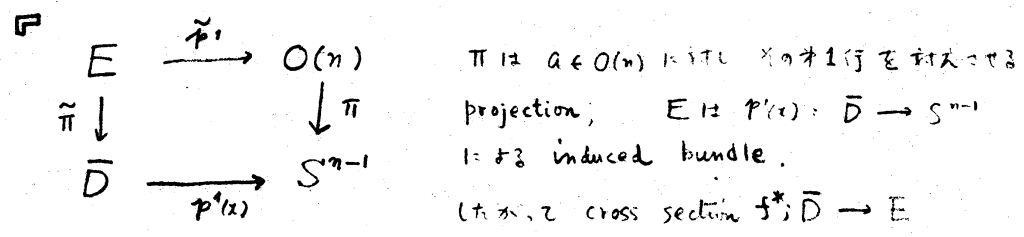 『
E \xrightarrow{\tilde{p}^1} O(n)
\tilde{π} ↓ ↓ π
\bar{D} \xrightarrow{p^1(x)} S^{n-1}
π は a ∈ O(n) に対し その第1行を対応させる
projection; E は p^1(x): \bar{D} → S^{n-1}
による induced bundle.
したがって cross section f^*; \bar{D} → E